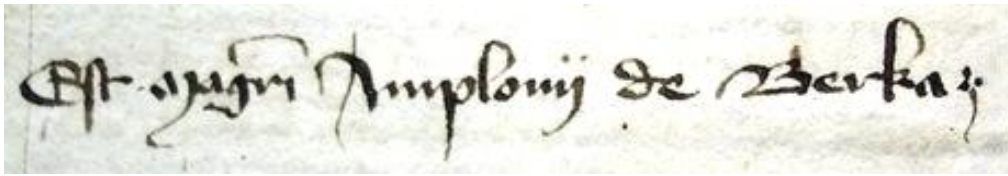 Est mag̅ri Amplonij de Berkaꝫ